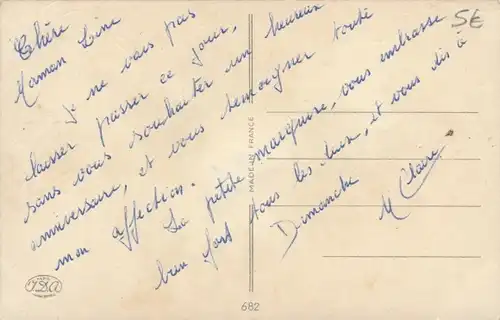 Chère
Maman Line
Je ne vais pas
laisser passer ce jour,
sans vous souhaiter un heureux
anniversaire, et vous temoigner toute
mon affection.
La petite marquise, vous embrasse
bien fort tous les deux, et vous dis à
Dimanche
M Claire
5€
MADE IN FRANCE
682